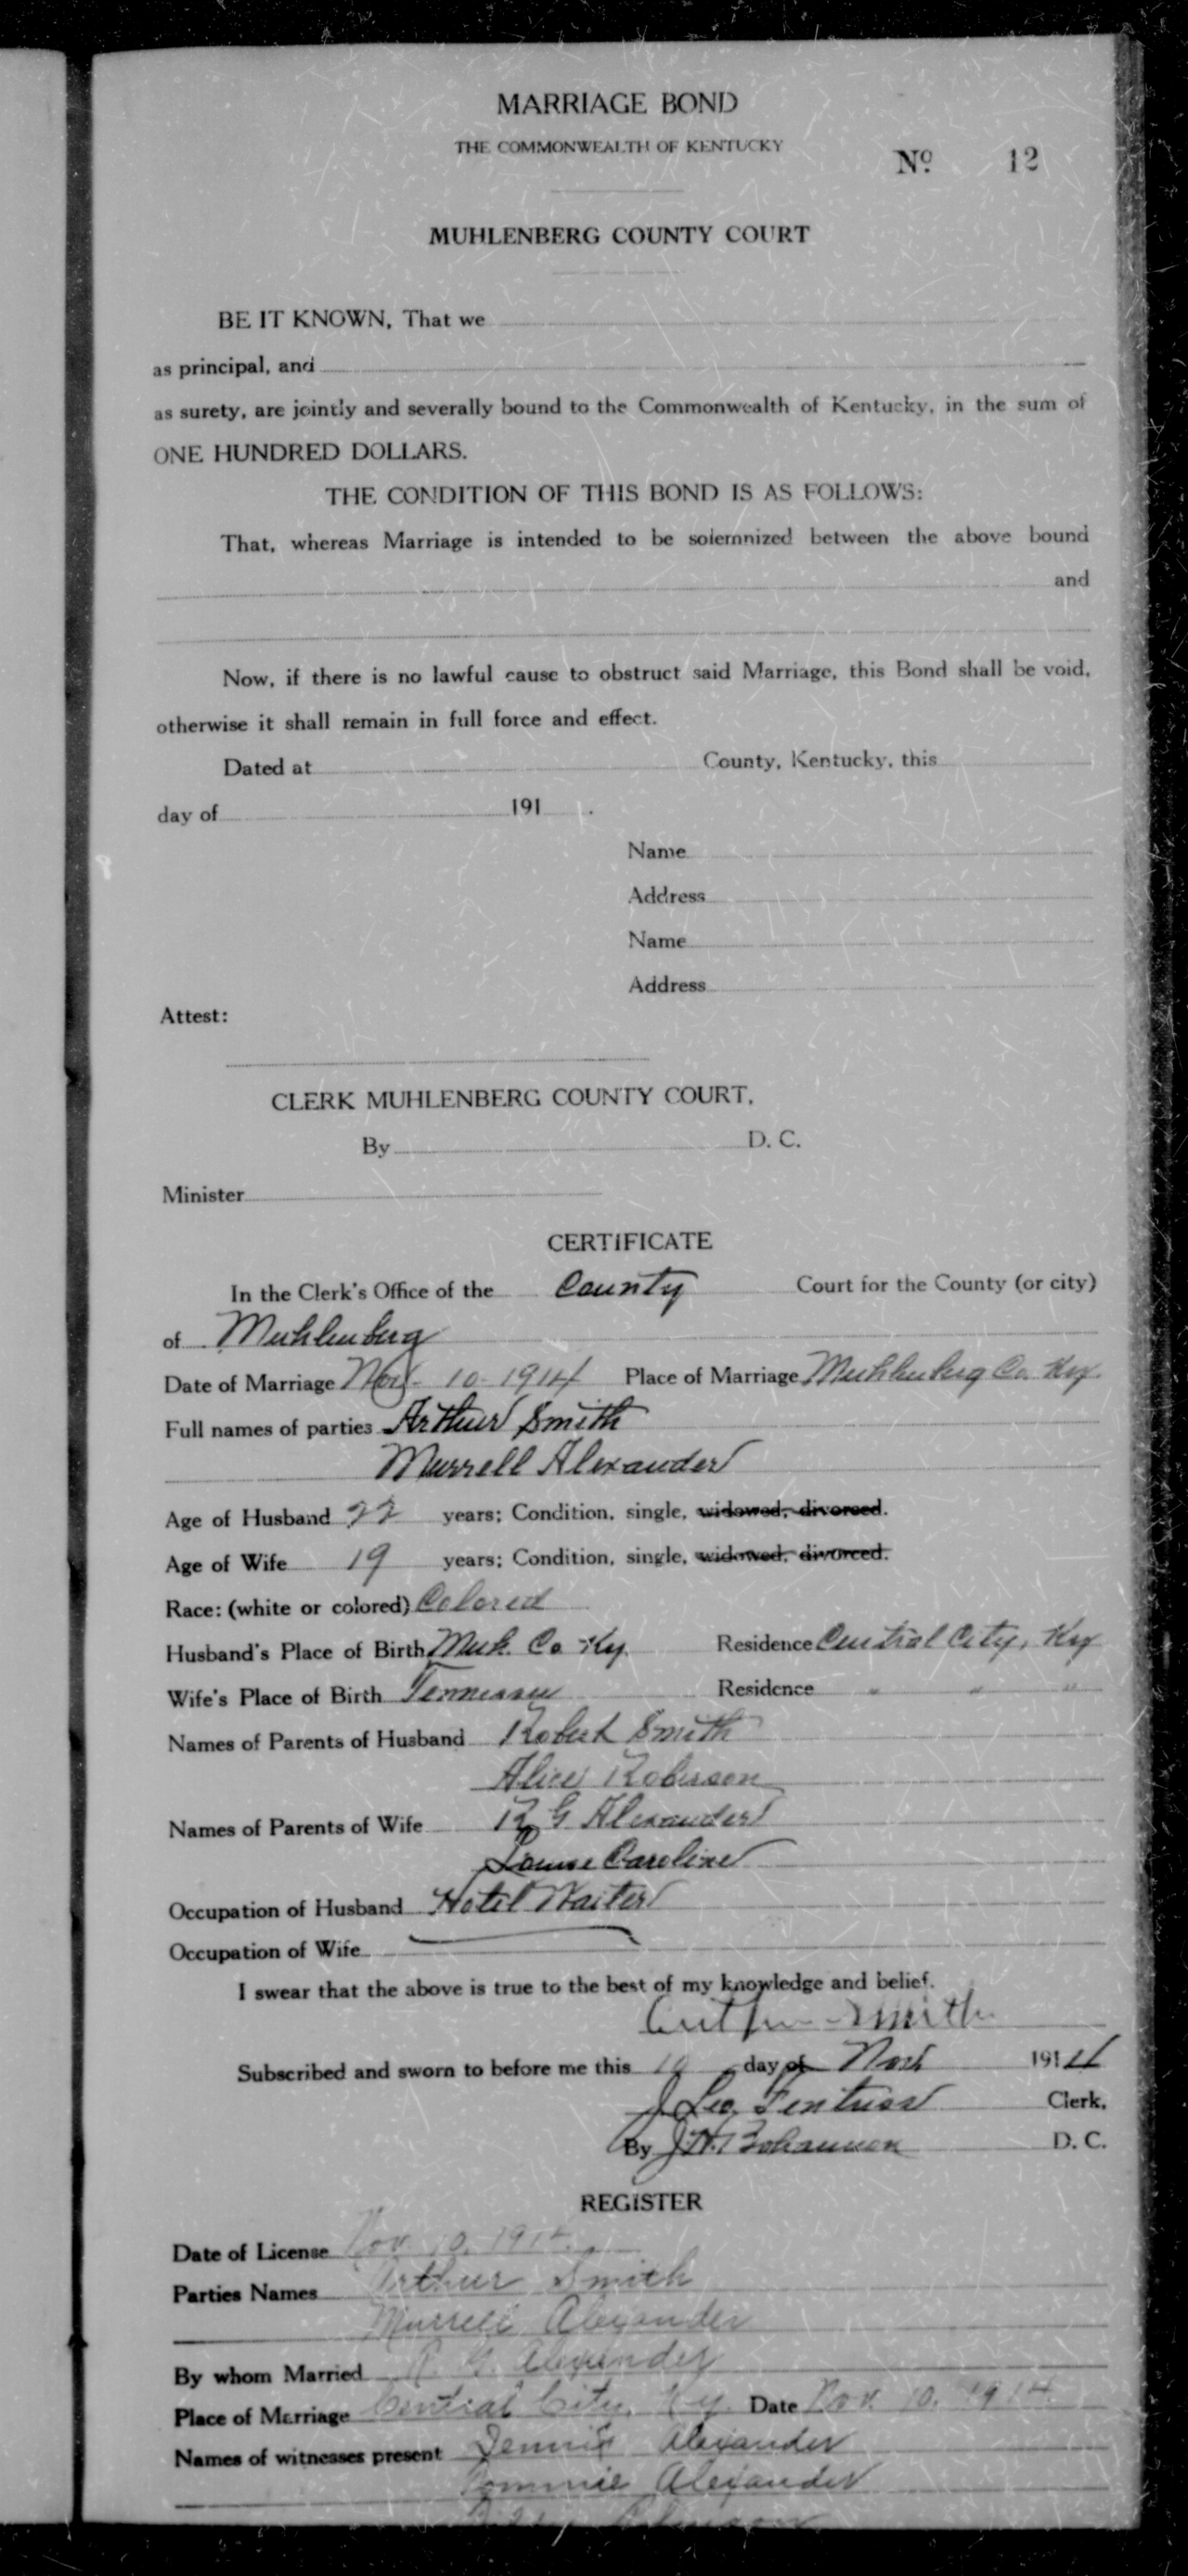 MARRIAGE BOND
THE COMMONWEALTH OF KENTUCKY
No. 12
MUHLENBERG COUNTY COURT
BE IT KNOWN, That we
as principal, and
as surety, are jointly and severally bound to the Commonwealth of Kentucky, in the sum of
ONE HUNDRED DOLLARS.
THE CONDITION OF THIS BOND IS AS FOLLOWS:
That, whereas Marriage is intended to be solemnized between the above bound
and
Now, if there is no lawful cause to obstruct said Marriage, this Bond shall be void,
otherwise it shall remain in full force and effect.
Dated at County, Kentucky, this
day of 191 .
Name
Address
Name
Address
Attest:
CLERK MUHLENBERG COUNTY COURT,
By D. C.
Minister
CERTIFICATE
In the Clerk's Office of the County Court for the County (or city)
of Muhlenberg
Date of Marriage Nov. 10-1914 Place of Marriage Muhlenberg Co. Ky.
Full names of parties Arthur Smith
Murrell Alexander
Age of Husband 22 years; Condition, single, widowed, divorced.
Age of Wife 19 years; Condition, single, widowed, divorced.
Race: (white or colored) Colored
Husband's Place of Birth Muh. Co Ky. Residence Central City, Ky
Wife's Place of Birth Tennessee Residence " " "
Names of Parents of Husband Robert Smith
Alice Roberson
Names of Parents of Wife R G Alexander
Louise Caroline
Occupation of Husband Hotel Waiter
Occupation of Wife
I swear that the above is true to the best of my knowledge and belief.
Arthur Smith
Subscribed and sworn to before me this 10 day of Nov 1914
J. Leo. Fentress Clerk,
By J. H. Bohannon D. C.
REGISTER
Date of License Nov. 10, 1914.
Parties Names Arthur Smith
Murrell Alexander
By whom Married R. G. Alexander
Place of Marriage Central City, Ky. Date Nov. 10, 1914.
Names of witnesses present Jennie Alexander
Tommie Alexander